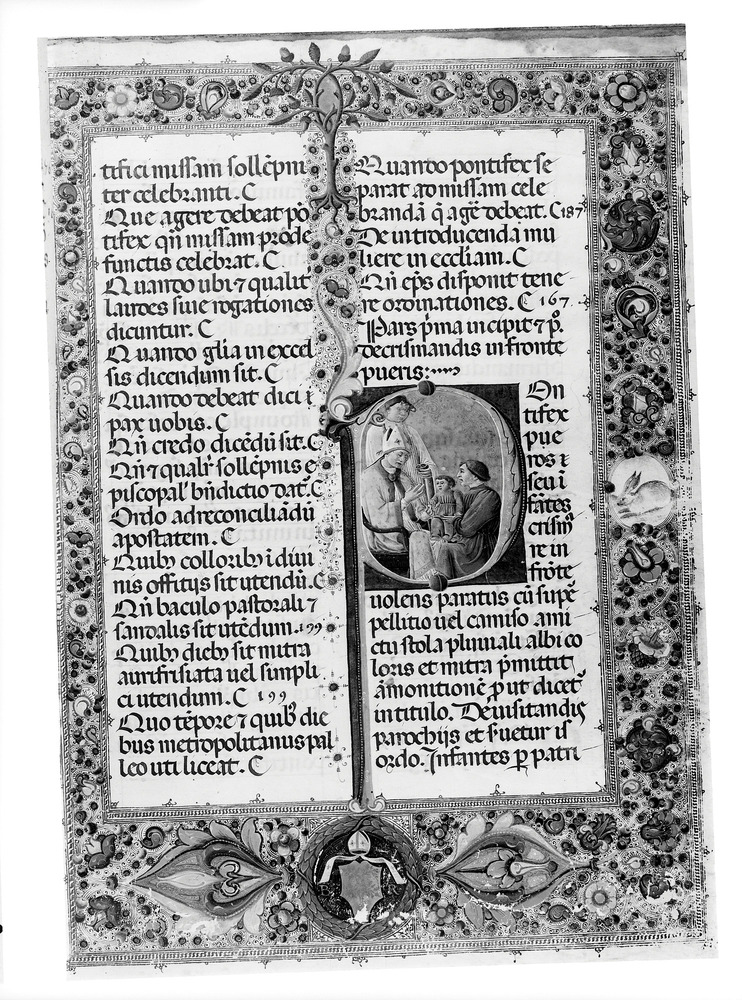 tifici missam sollēpni
ter celebranti. C
Que agere debeat pō
tifex qn̄ missam prode
functis celebrat. C
Quando ubi ⁊ qualit̄
laudes siue rogationes
dicuntur. C
Quando gl̄ia in excel
sis dicendum sit. C
Quando debeat dici ı
pax uobis. C
Qn̄ credo dicēdū sit. C
Qn̄ ⁊ qualr̄ sollēpnis e
piscopal' bn̄dictio dat̄. C
Ordo ad reconciliādū
apostatem. C
Quibꝫ colloribꝫ ī diui
nis offitijs sit utendū. C
Qn̄ baculo pastorali ⁊
sandalis sit utēdum. 199
Quibꝫ diebꝫ sit mitra
aurifrisiata uel simpli
ci utendum. C 199
Quo tēpore ⁊ quibꝫ die
bus metropolitanus pal
leo uti liceat. C
Quando pontifex se
parat ad missam cele
brandā q̄ agē debeat. C 187
De introducenda mu
liere in eccl̄iam. C
Qn̄ ep̄s disponit tene
re ordinationes. C 167
Pars p̄ma incipit ⁊ p̄.
de crismandis in fronte
pueris:
On
tifex
pue
ros ⁊
seu ī
fātes
crism̄
re in
frōte
uolens paratus cū supē
pellitio uel camiso ami
ctu stola pluuiali albi co
loris et mitra p̄mittit
āmonitionē ꝓut dicet̄
in titulo. De uisitandis
parochijs et s̄uetur is
ordo. Infantes ꝑ patri